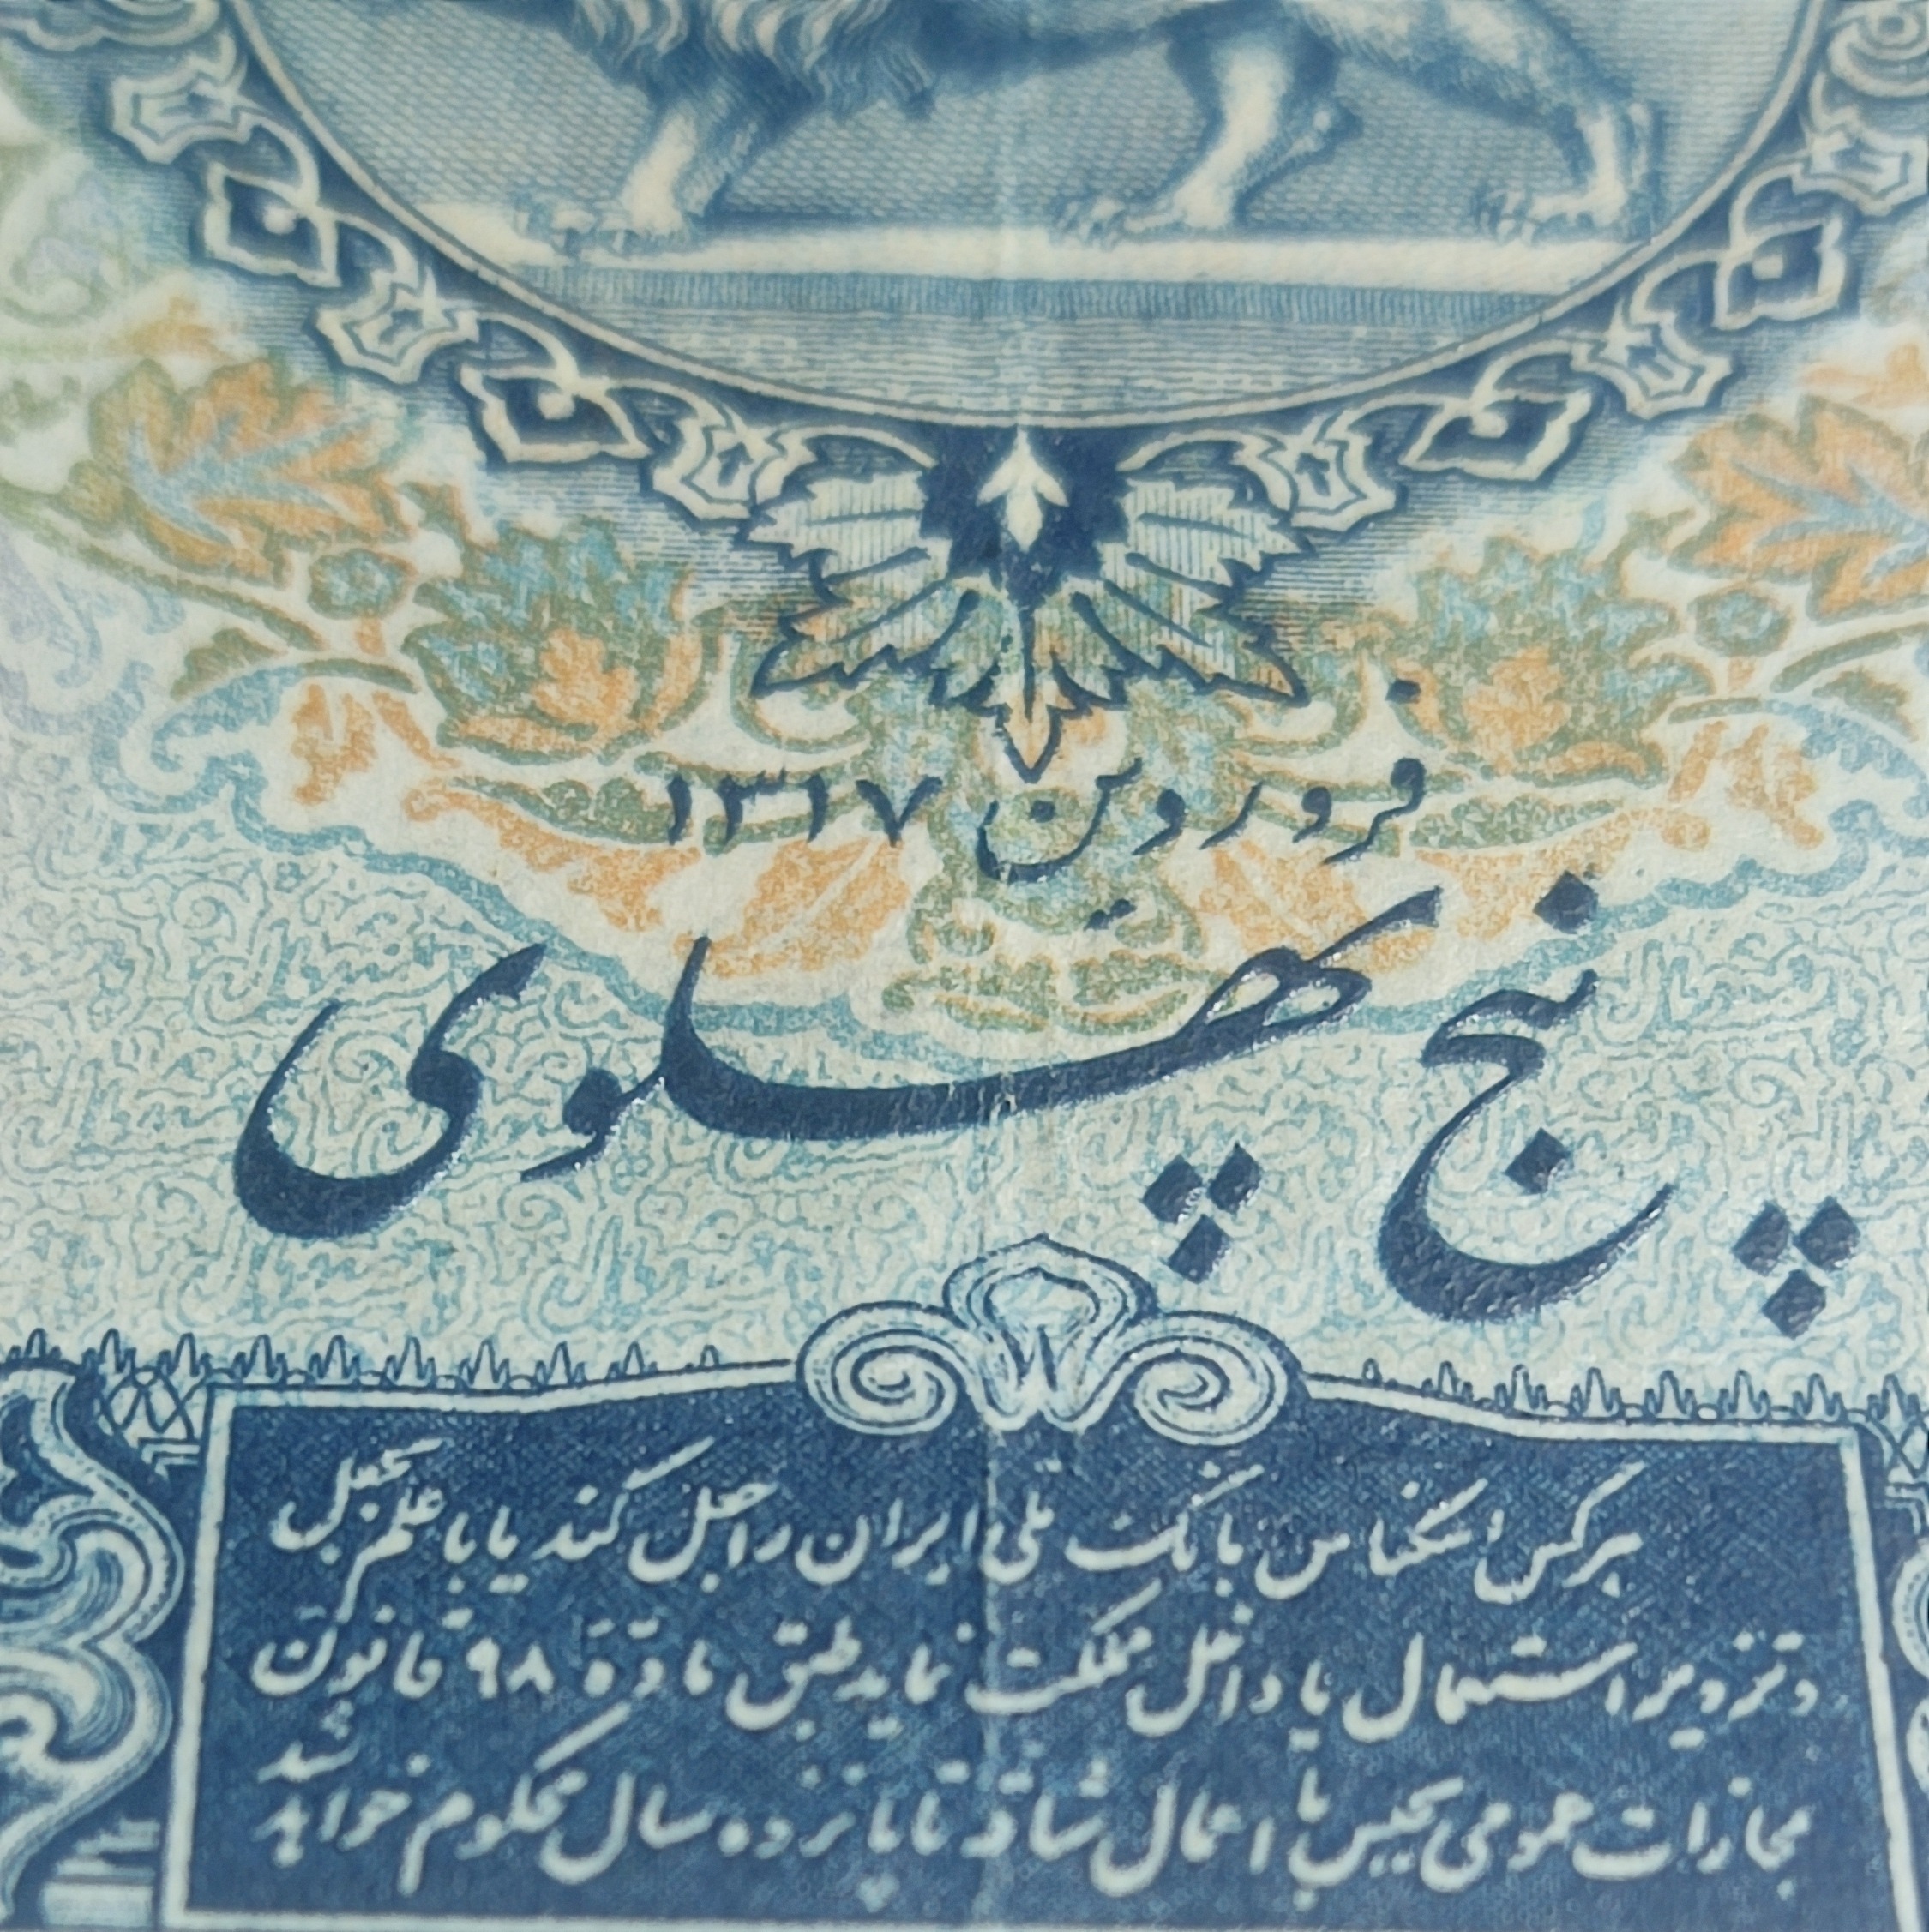 فروردین ۱۳۱۷
پنج پهلوی
هر کس اسکناس بانک ملی ایران را جعل کند یا با علم بجعل
و تزویر استعمال یا داخل مملکت نماید طبق مادّهٔ ۹۸ قانون
مجازات عمومی بحبس با اعمال شاقّه تا پانزده سال محکوم خواهد شد